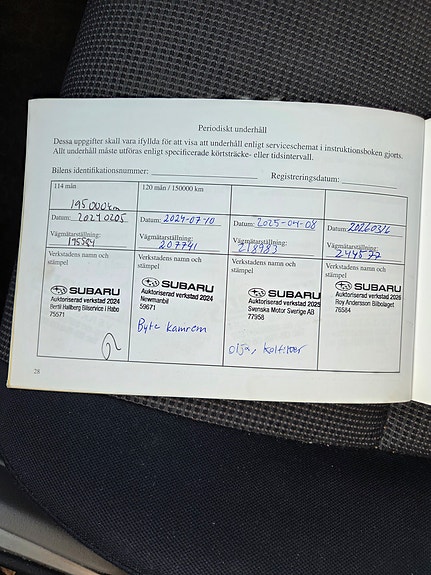 Periodiskt underhåll
Dessa uppgifter skall vara ifyllda för att visa att underhåll enligt serviceschemat i instruktionsboken gjorts.
Allt underhåll måste utföras enligt specificerade körtsträcke- eller tidsintervall.
Bilens identifikationsnummer:
Registreringsdatum:
114 mån
195000km
Datum: 20240205
Vägmätarställning:
Verkstadens namn och
stämpel
SUBARU
Auktoriserad verkstad 2024
Bertil Hallberg Bilservice i Habo
75571
120 mån / 150000 km
Datum: 2024-07-10
Vägmätarställning:
207741
Verkstadens namn och
stämpel
SUBARU
Auktoriserad verkstad 2024
Newmanbil
59671
Byte kamrem
Datum: 2025-04-08
Vägmätarställning:
218983
Verkstadens namn och
stämpel
SUBARU
Auktoriserad verkstad 2025
Svenska Motor Sverige AB
77958
olja,
Datum:
Vägmätarställning:
Verkstadens namn och
stämpel
SUBARU
Auktoriserad verkstad 2026
Roy Andersson Bilbolaget
76584
28